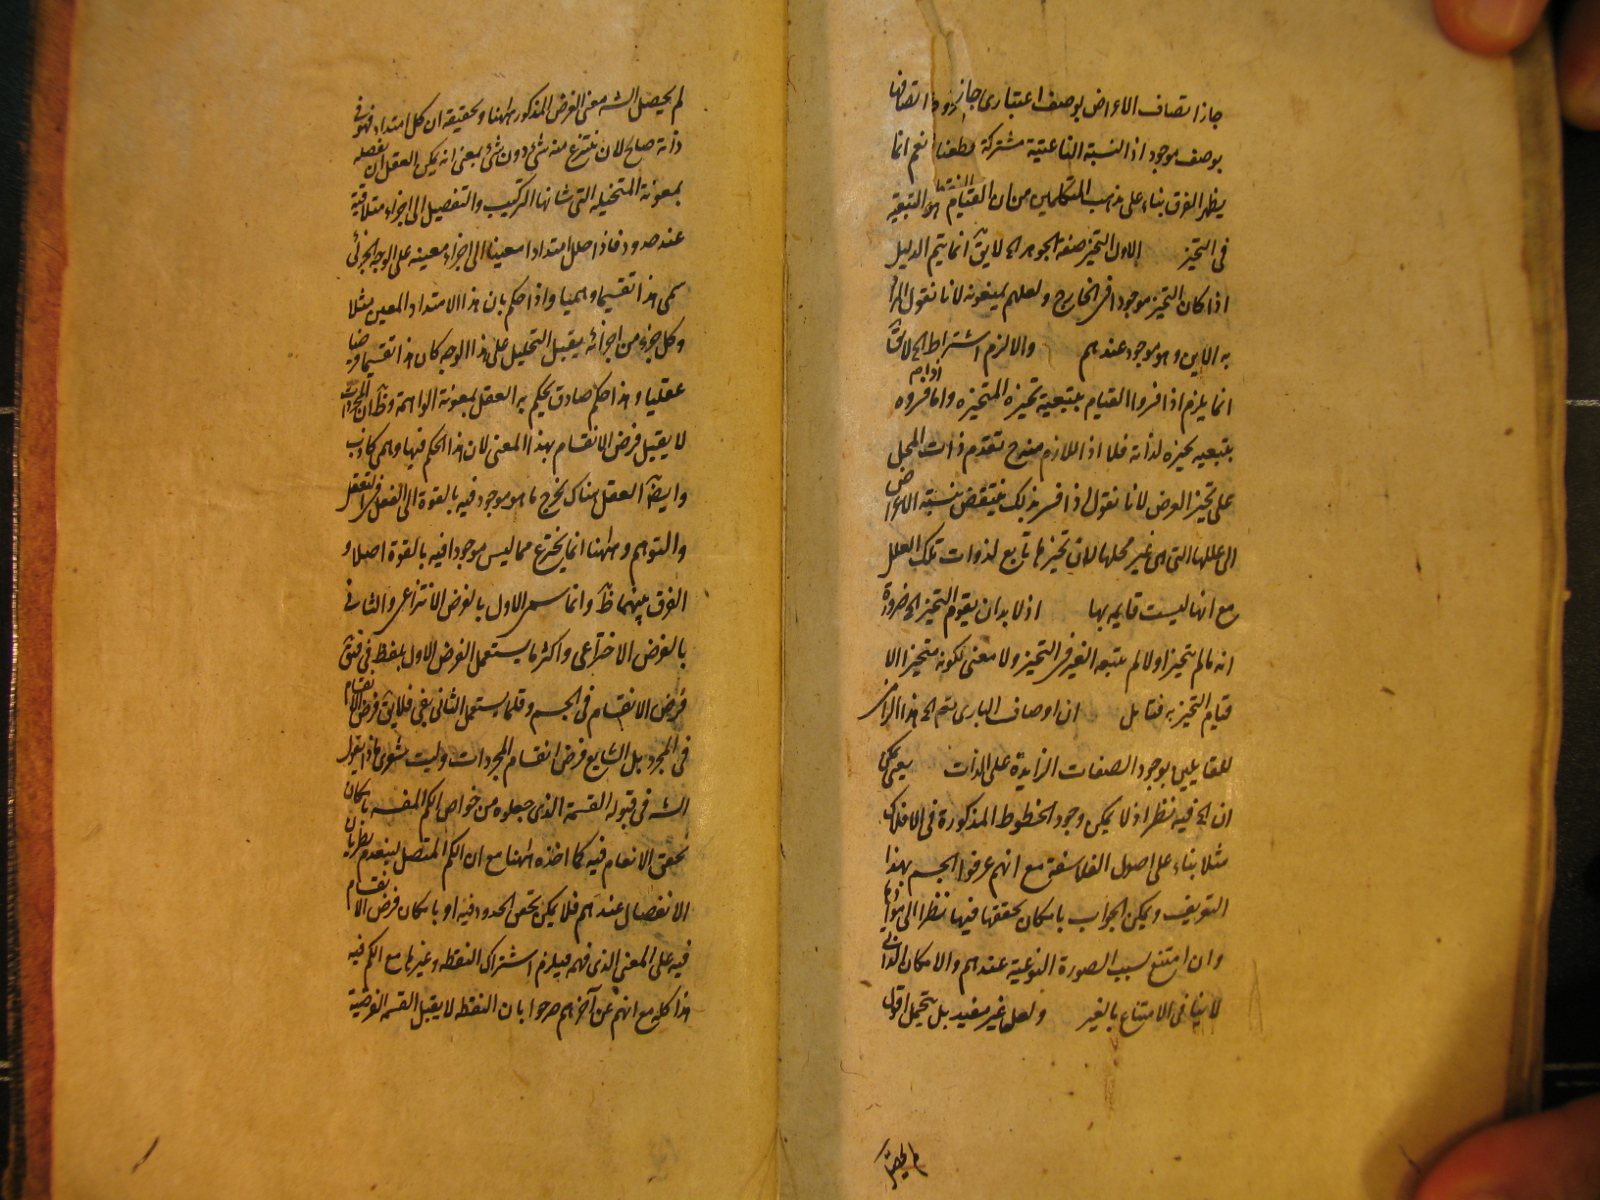 جاز اتصاف الاعراض بوصف اعتباري جاز اتصافها
بوصف موجود اذ النسبة الناعتية مشتركة قطعا نعم انما
يظهر الفرق بناء على مذهب المتكلمين من ان القيام هو التبعية
في التحيز الاول التحيز صفة الجوهر الخ لا يق انما يتم الدليل
اذا كان التحيز موجودا في الخارج ولعلهم يمنعونه لانا نقول المراد
به الاين وهو موجود عندهم والا لزم اشتراط الخ لا يق
انما يلزم اذا فسروا القيام بتبعية تحيزه المتحيزه واما فسروه
بتبعيه تحيزه لذاته فلا اذ اللازم منه ح تقدم ذات المحل
على تحيز العرض لانا نقول اذا فسر بذلك ينتقض بنسبة الاعراض
الى عللها التي هي غير محلها لان تحيزها تابع لذوات تلك العلل
مع انها ليست قايمه بها اذ لا بد ان يقوم التحيز الخ ضرورة
انه مالم يتحيز اولا لم يتبعه الغير في التحيز ولا معنى لكونه متحيزا الا
قيام التحيز به فتامل ان اوصاف الباري تع الخ هذا الزامي
للقايلين بوجود الصفات الزايدة على الذات يعني يمكن
ان الخ فيه نظر اذ لا يمكن وجود الخطوط المذكورة في الافلاك
مثلا بناء على اصول الفلاسفة مع انهم عرفوا الجسم بهذا
التعريف ويمكن الجواب بامكان تحققها فيها نظرا الى ذواتها
وان امتنع بسبب الصورة النوعية عندهم والامكان الذاتي
لا ينافي الامتناع بالغير ولعله غير مفيد بل يتحمل اقول
لم يحصل
لم يحصل الشه معنى الفرض المذكور ههنا وتحقيقه ان كل امتداد فهو في
ذاته صالح لان ينتزع منه شئ دون شئ بمعنى انه يمكن العقل ان يفصله
بمعونة المتخيله التي شانها التركيب والتفصيل الى اجزاء متلاقية
عند حدود فاذا حلل امتدادا معينا الى اجزاء معينه على الوجه الجزئي
سمي هذا تقسيما وهميا واذا حكم بان هذا الامتداد المعين مثلا
وكل جزء من اجزائه يقبل التحليل على هذا الوجه كان هذا تقسيما فرضيا
عقليا وهذا حكم صادق يحكم به العقل بمعونة الواهمة وظ ان المجردات
لا يقبل فرض الانقسام بهذا المعنى لان هذا الحكم فيها وهمي كاذب
وايضا العقل هناك يخرج ما هو موجود فيه بالقوة الى الفعل في التعقل
والتوهم وههنا انما يخترع مما ليس موجودا فيه بالقوة اصلا و
الفرق بينهما ظ وانما سمى الاول بالفرض الانتزاعي والثاني
بالفرض الاختراعي واكثر ما يستعمل الفرض الاول بلفظ في فيق
فرض الانقسام في الجسم وقلما يستعمل الثاني بفي فلا يق فرض الانقسام
في المجرد بل الشايع فرض انقسام المجردات وليت شعري ماذا يقول
الشه في قبول القسمة الذي جعلوه من خواص الكم المفسر بامكان
تحقق الانقسام فيه كما اخذه ههنا مع ان الكم المتصل لينعدم بطريان
الانفصال عندهم فلا يمكن تحقق الحدود فيه او بامكان فرض الانقسام
فيه على المعنى الذي فهمه فيلزم اشتراك النقطه وغيرها مع الكم فيه
هذا كله مع انهم عن آخرهم صرحوا بان النقطه لا يقبل القسمه الفرضية